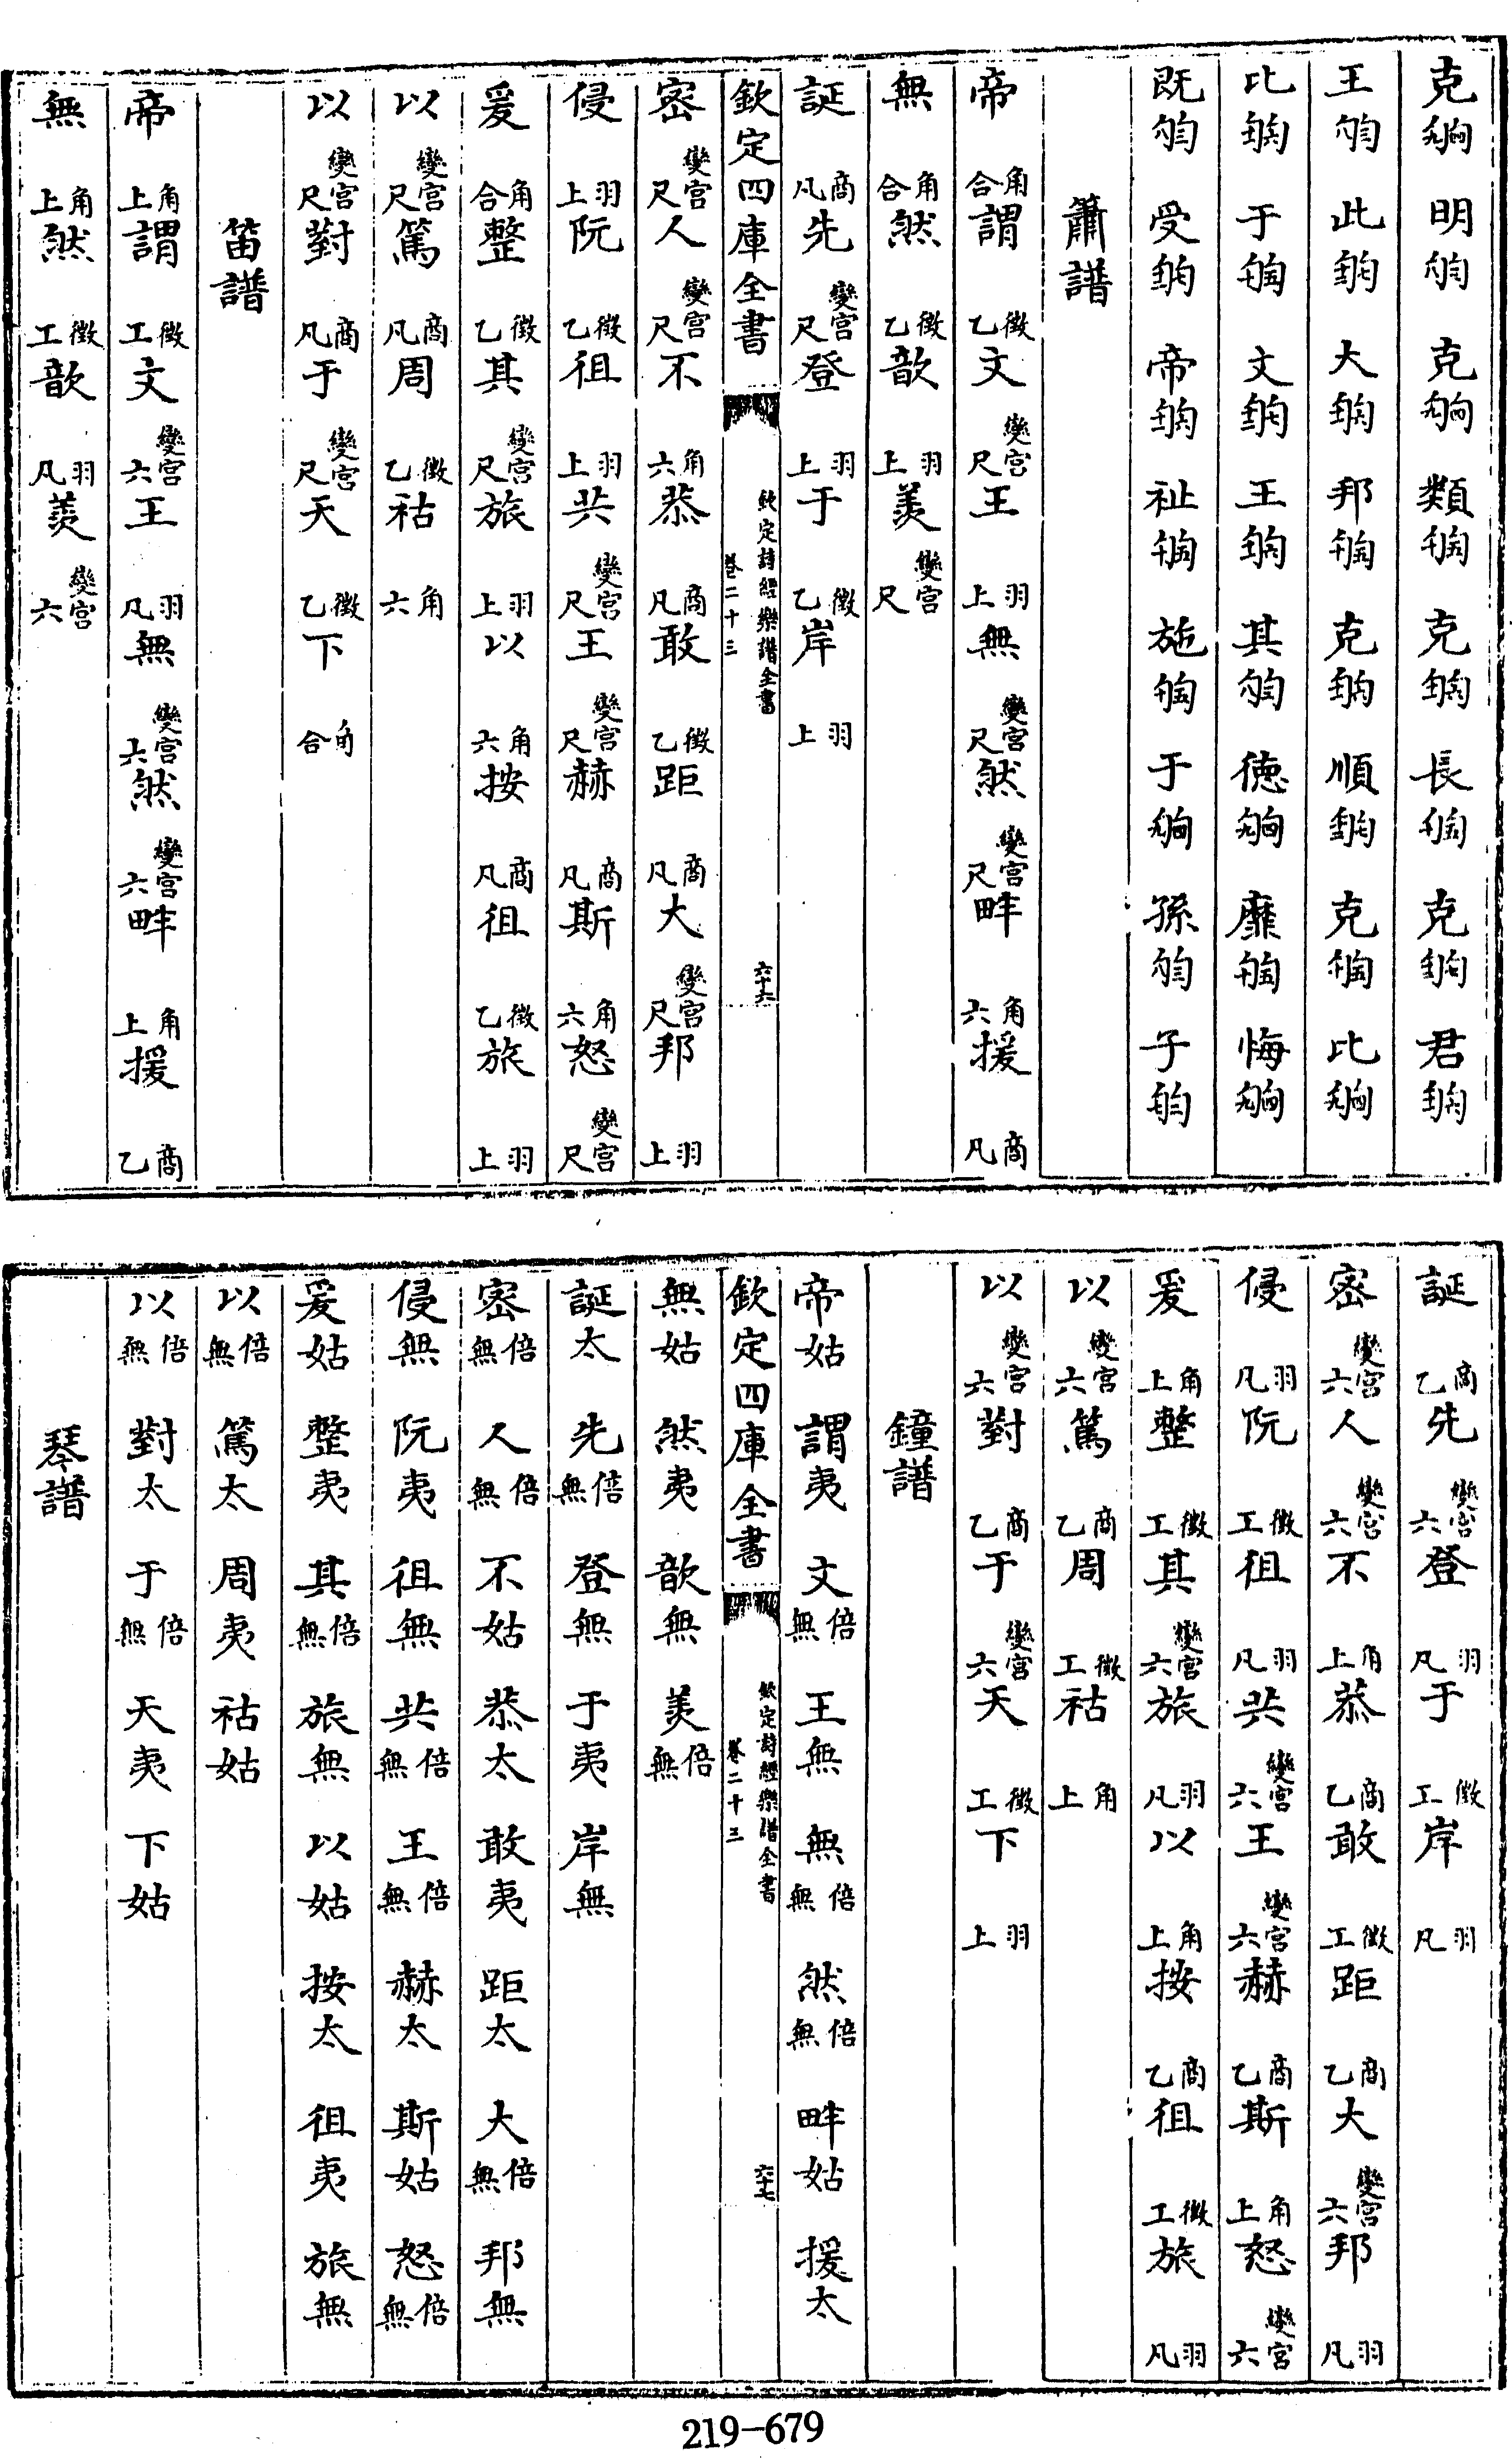 克 明 克 類 克 長 克 君
王 此 大 邦 克 順 克 比
比 于 文 王 其 德 靡 悔
既 受 帝 祉 施 于 孫 子
簫譜
帝角合謂徵乙文變宮尺王羽上無變宮尺然變宮尺畔角六援商凡
無角合然徵乙歆羽上羨變宮尺
誕商凡先變宮尺登羽上于徵乙岸羽上
欽定四庫全書 欽定詩經樂譜全書 卷二十三 六十六
密變宮尺人變宮尺不角六恭商凡敢徵乙距商凡大變宮尺邦羽上
侵羽上阮徵乙徂羽上共變宮尺王變宮尺赫商凡斯角六怒變宮尺
爰角合整徵乙其變宮尺旅羽上以角六按商凡徂徵乙旅羽上
以變宮尺篤商凡周徵乙祜角六
以變宮尺對商凡于變宮尺天徵乙下角合
笛譜
帝角上謂徵工文變宮六王羽凡無變宮六然變宮六畔角上援商乙
無角上然徵工歆羽凡羨變宮六
誕商乙先變宮六登羽凡于徵工岸羽凡
密變宮六人變宮六不角上恭商乙敢徵工距商乙大變宮六邦羽凡
侵羽凡阮徵工徂羽凡共變宮六王變宮六赫商乙斯角上怒變宮六
爰角上整徵工其變宮六旅羽凡以角上按商乙徂徵工旅羽凡
以變宮六篤商乙周徵工祜角上
以變宮六對商乙于變宮六天徵工下羽上
鐘譜
帝姑謂夷文倍無王無無倍無然倍無畔姑援太
無姑然夷歆無羨倍無
欽定四庫全書 欽定詩經樂譜全書 卷二十三 六十七
誕太先倍無登無于夷岸無
密倍無人倍無不姑恭太敢夷距太大倍無邦無
侵無阮夷徂無共倍無王倍無赫太斯姑怒倍無
爰姑整夷其倍無旅無以姑按太徂夷旅無
以倍無篤太周夷祜姑
以倍無對太于倍無天夷下姑
琴譜
219-679